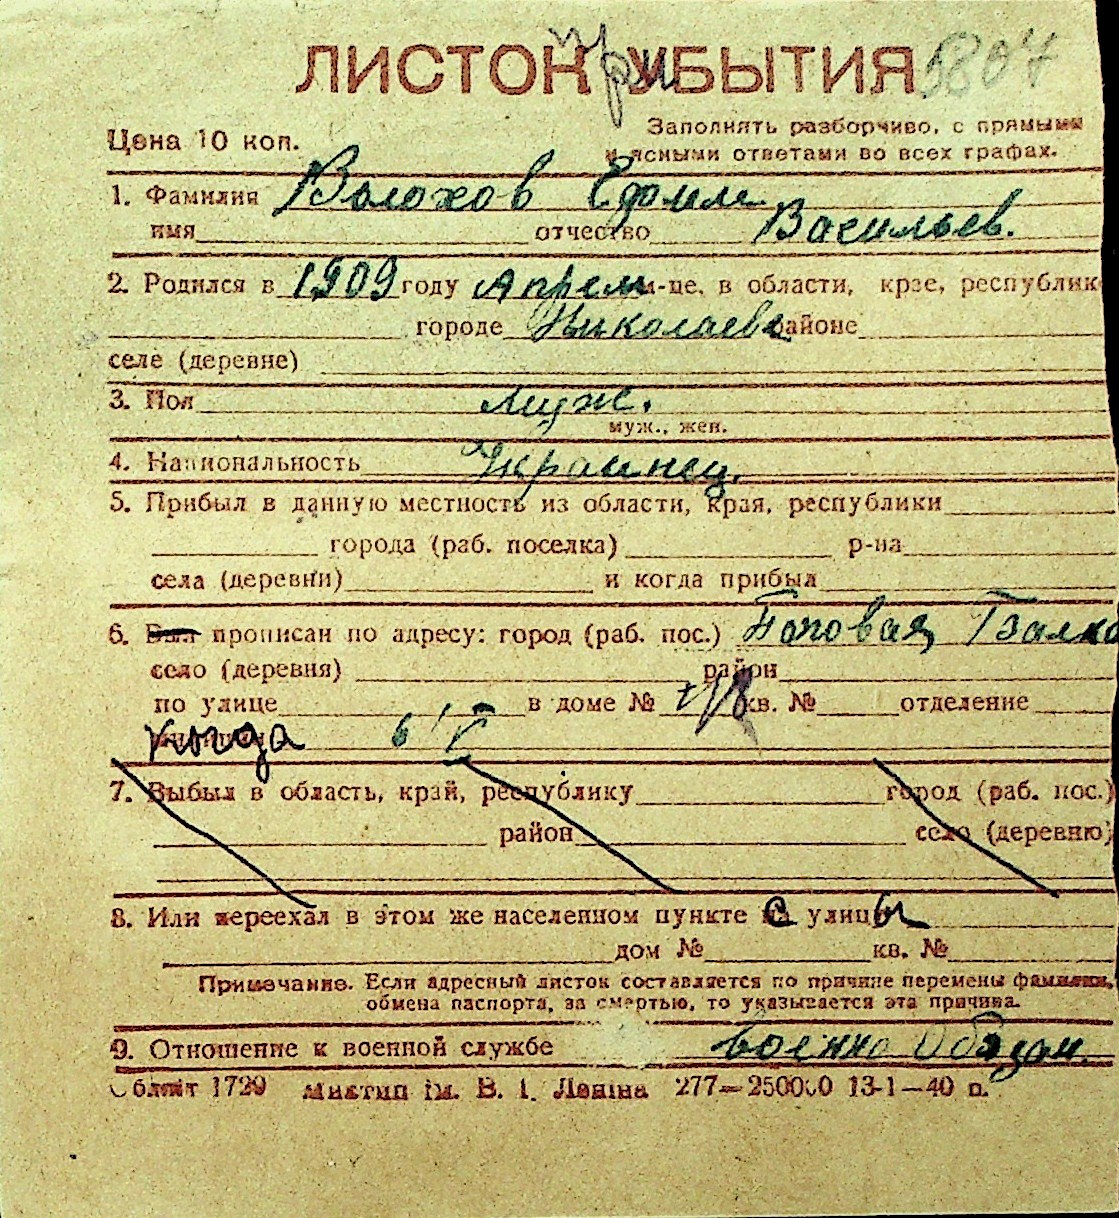 ЛИСТОК при УБЫТИЯ 5807
Цена 10 коп.
Заполнять разборчиво, с прямыми
и ясными ответами во всех графах.
1. Фамилия Волохов Ефим
имя отчество Васильев.
2. Родился в 1909 году Апрель м-це, в области, крае, республик
городе Николаеве районе
селе (деревне)
3. Пол муж.
муж., жен.
4. Национальность Украинец.
5. Прибыл в данную местность из области, края, республики
города (раб. поселка) р-на
села (деревни) и когда прибыл
6. Был прописан по адресу: город (раб. пос.) Балка
село (деревня) район
по улице в доме № кв. № отделение
когда
7. Выбыл в область, край, республику город (раб. пос.)
район село (деревню)
8. Или переехал в этом же населенном пункте с улицы
дом № кв. №
Примечание. Если адресный листок составляется по причине перемены фамилии,
обмена паспорта, за смертью, то указывается эта причина.
9. Отношение к военной службе военно обязан.
Обліт 1729 Миктип ім. В. І. Леніна 277—250000 13-1—40 р.